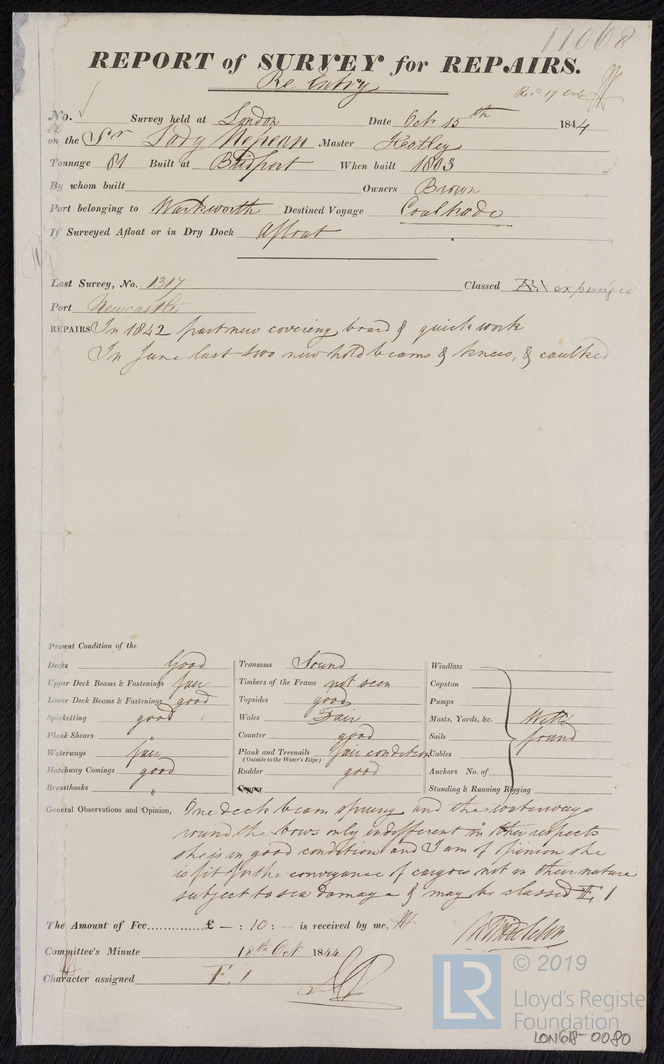 11068
REPORT of SURVEY for REPAIRS.
Re Entry
No. Survey held at London Date Octr 15th 1844
on the Sr Lady Nepean Master Heatley
Tonnage 81 Built at Bridport When built 1803
By whom built Owners Brown
Port belonging to Warkworth Destined Voyage Coaltrade
If Surveyed Afloat or in Dry Dock Afloat
Last Survey, No. 1317 Classed Æ1 expunged
Port Newcastle
REPAIRS In 1842 part new covering board & quick work
In June last two new hold beams & knees, & caulked
Present Condition of the
Decks Good
Upper Deck Beams & Fastenings fair
Lower Deck Beams & Fastenings good
Spirketting good
Plank Shears "
Waterways fair
Hatchway Comings good
Breasthooks "
Transoms Sound
Timbers of the Frame not seen
Topsides good
Wales Fair
Counter good
Plank and Treenails fair condition
(Outside to the Water's Edge)
Rudder good
Copper
Windlass
Capstan
Pumps
Masts, Yards, &c. Well
Sails found
Cables
Anchors No. of
Standing & Running Rigging
General Observations and Opinion, One deck beam sprung and the waterways
round the bows only indifferent in other respects
she is in good condition and I am of opinion she
is fit for the conveyance of cargoes not in their nature
subject to sea damage & may be classed Æ 1
The Amount of Fee............£ - : 10 : is received by me,
Committee's Minute 18th Oct 1844
Character assigned Æ 1
© 2019
LR Lloyd's Register
Foundation
LON618-0080